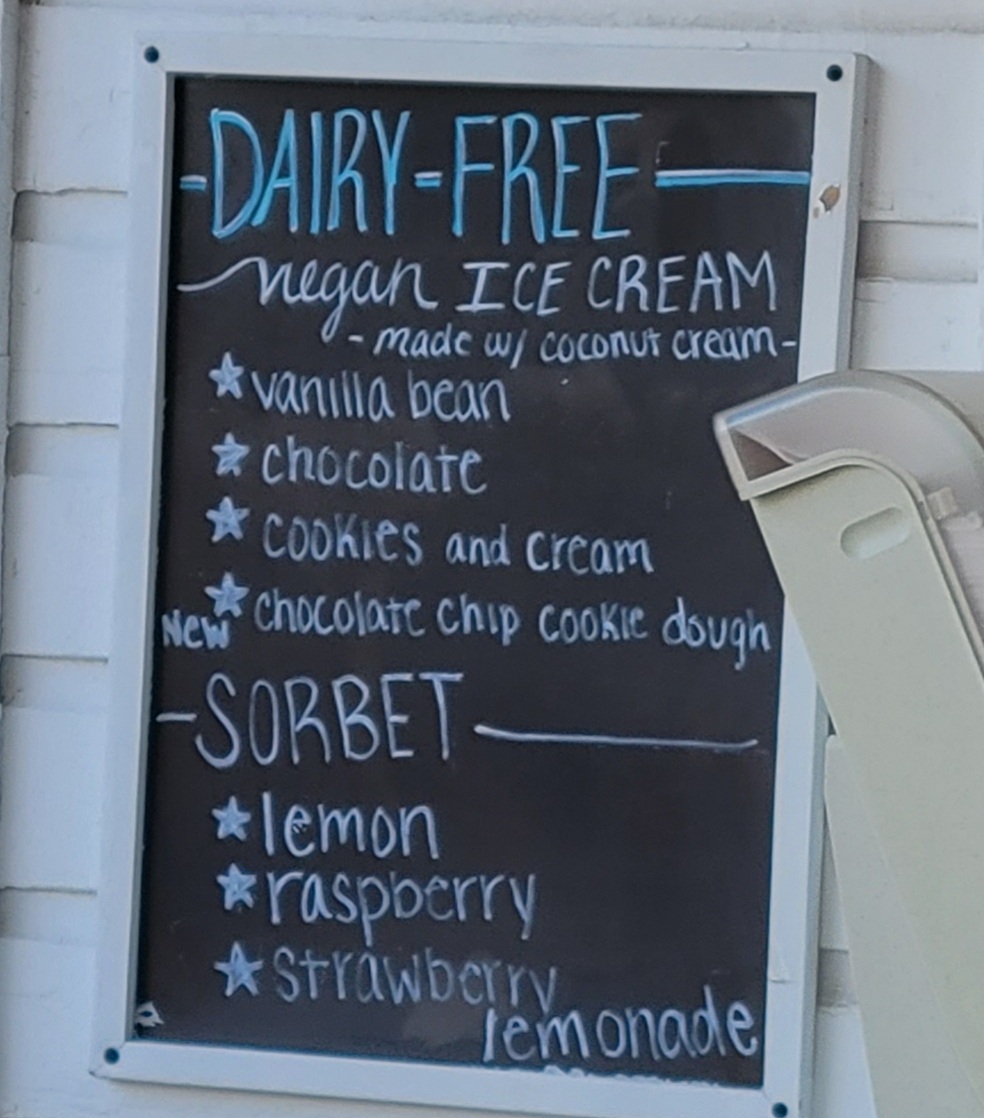 -DAIRY-FREE
vegan ICE CREAM
- made w/ coconut cream -
vanilla bean
chocolate
cookies and cream
New chocolate chip cookie dough
- SORBET
lemon
raspberry
strawberry
lemonade